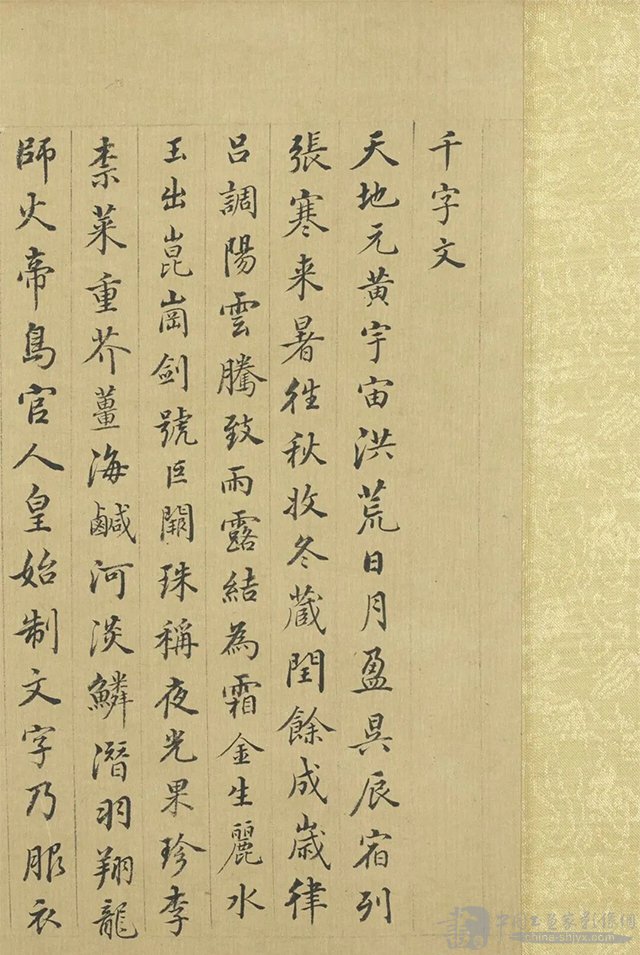 千字文
天地元黄宇宙洪荒日月盈昃辰宿列
張寒来暑往秋收冬蔵閏餘成歳律
吕調陽雲騰致雨露結為霜金生麗水
玉出崑崗劍號巨闕珠稱夜光果珍李
柰菜重芥薑海鹹河淡鱗潛羽翔龍
師火帝鳥官人皇始制文字乃服衣
china-shjyx.com